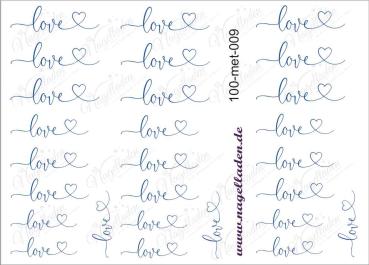 love love love
love love love
love love love
love love love
love love love
love love love
love love love
love love love
love love love
100-met-009
www.nagelladen.de
Nagelladen